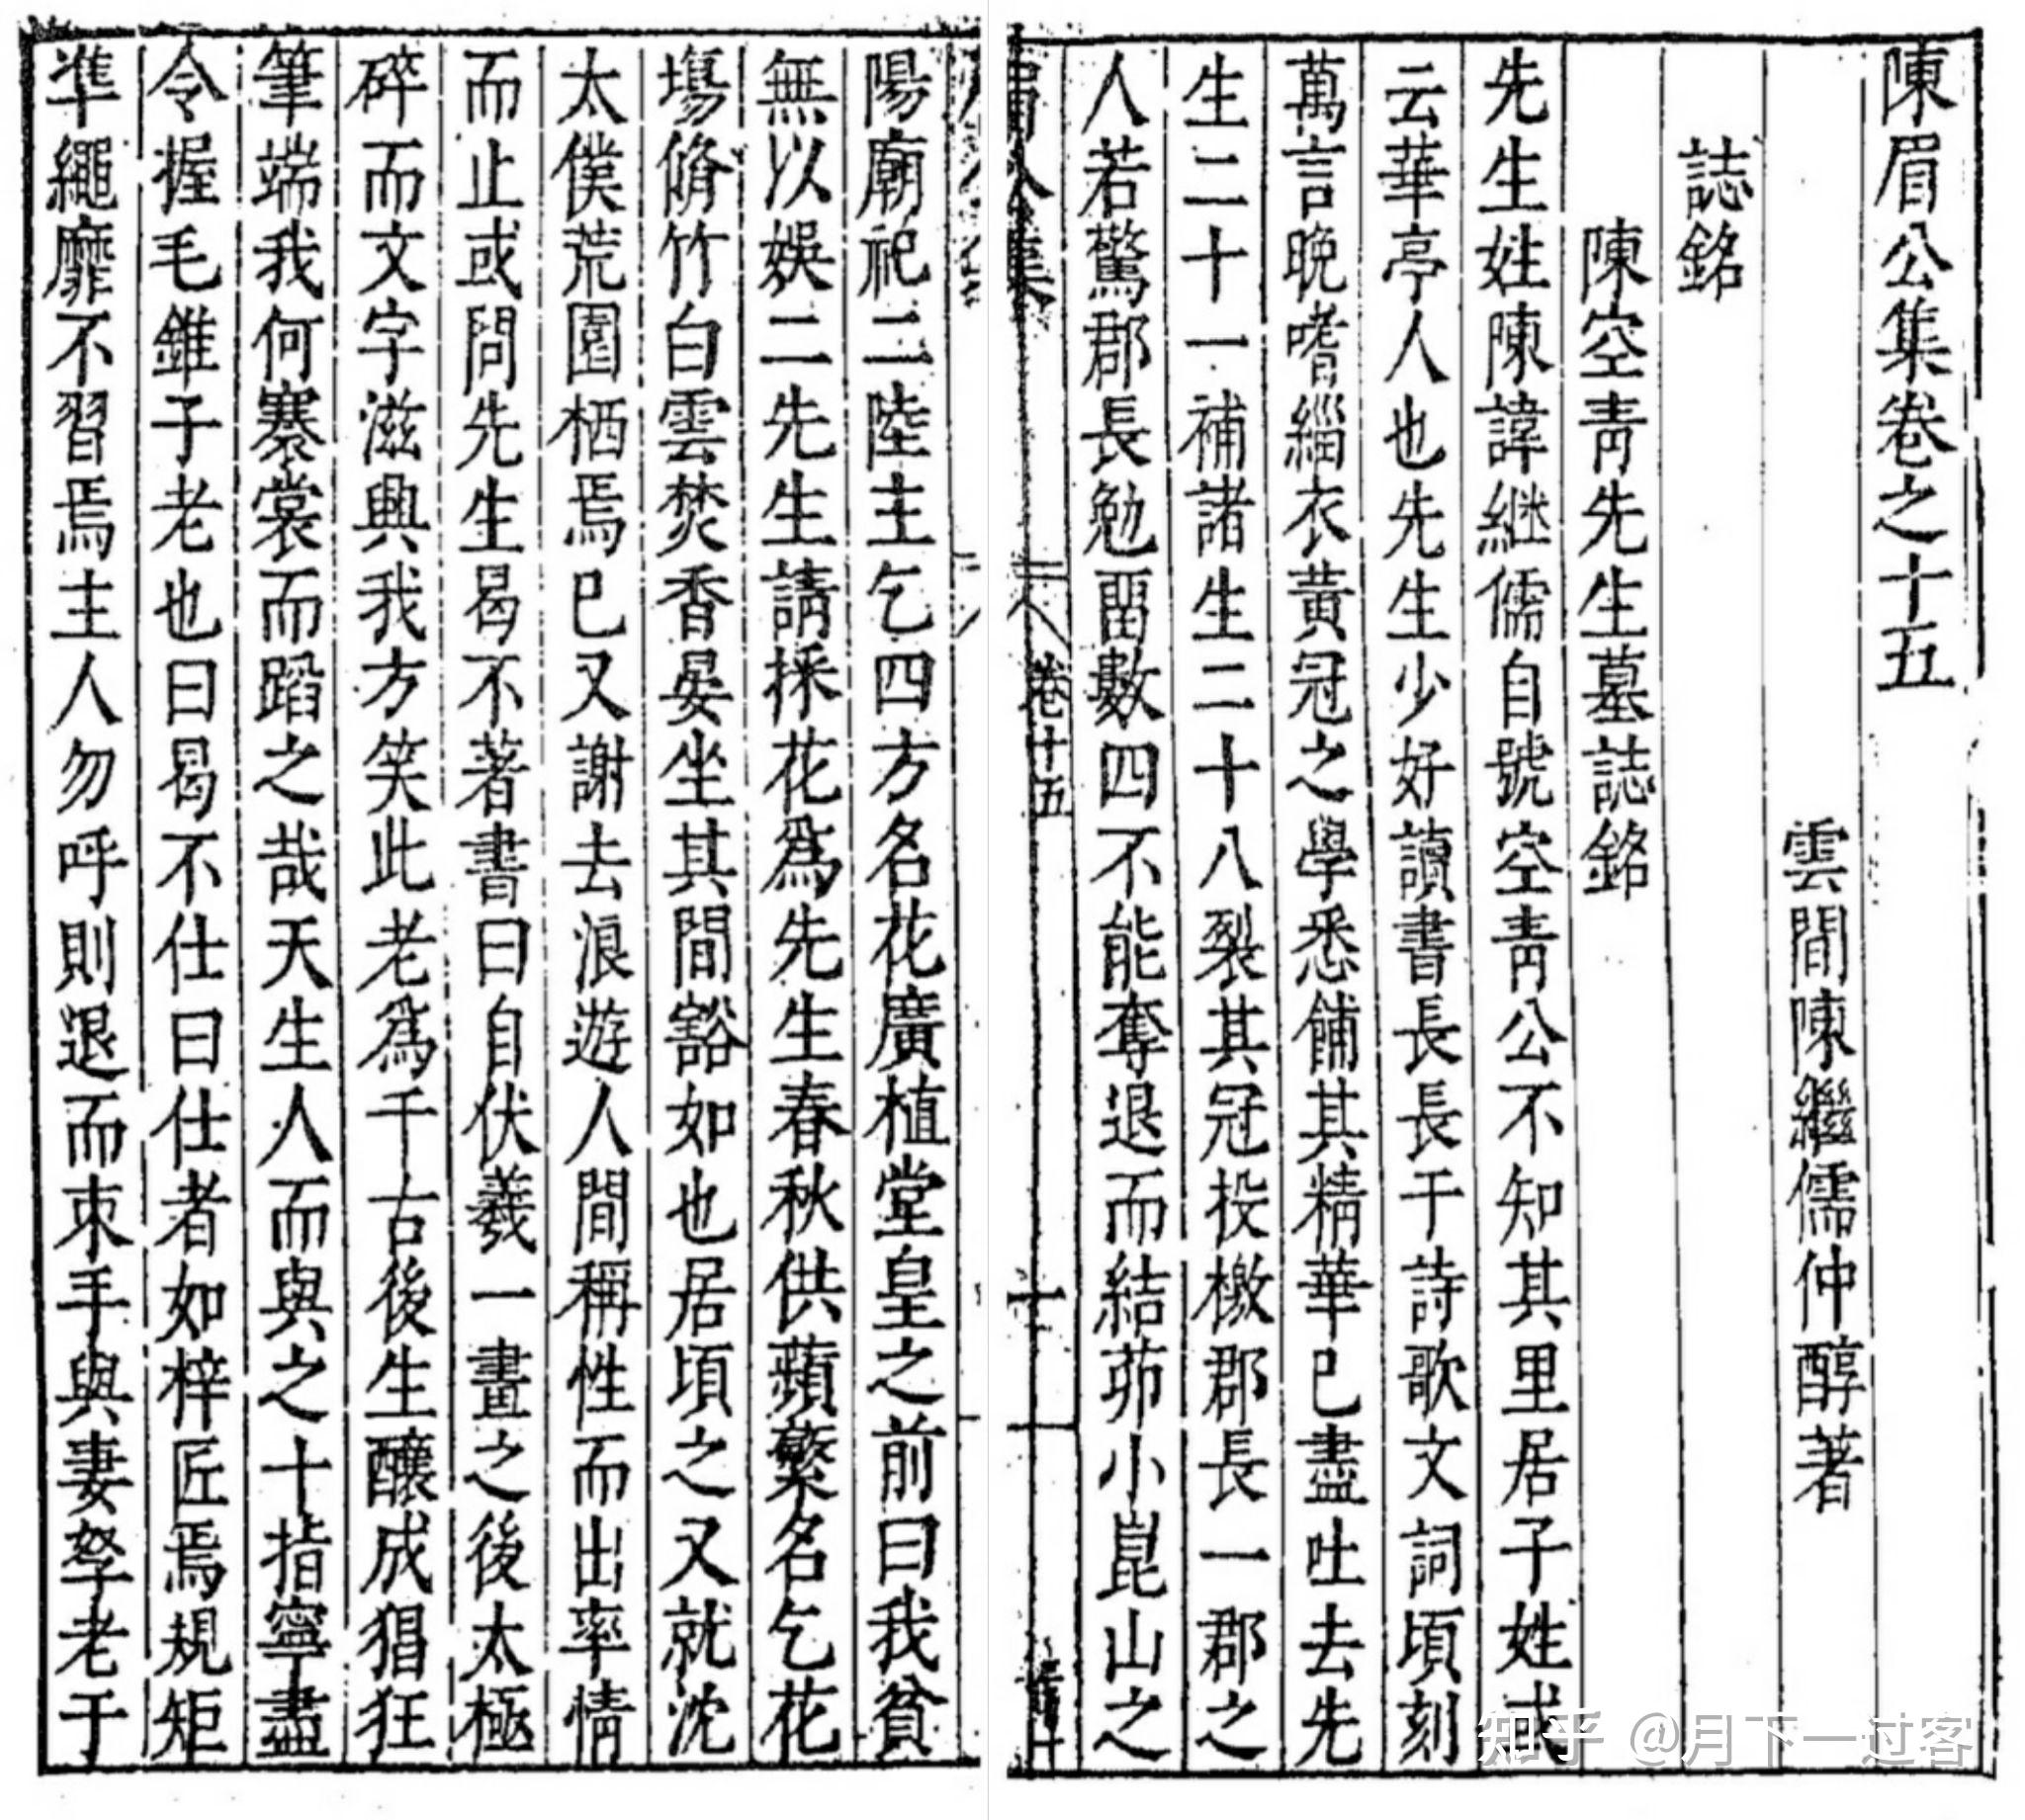 陳眉公集卷之十五
雲間陳繼儒仲醇著
誌銘
陳空青先生墓誌銘
先生姓陳諱継儒自號空青公不知其里居子姓或
云華亭人也先生少好讀書長長于詩歌文詞頃刻
萬言晩嗜緇衣黃冠之學悉餔其精華巳盡吐去先
生二十一補諸生二十八裂其冠投檄郡長一郡之
人若驚郡長勉畱數四不能奪退而結茆小崑山之
卷十五
陽廟祀二陸主乞四方名花廣植堂皇之前曰我貧
無以娛二先生請採花爲先生春秋供蘋蘩名乞花
塲脩竹白雲焚香晏坐其間豁如也居頃之又就沈
太僕荒園栖焉巳又謝去浪遊人間稱性而出率情
而止或問先生曷不著書曰自伏羲一畫之後太極
碎而文字滋興我方笑此老爲千古後生釀成猖狂
筆端我何褰裳而蹈之哉天生人而與之十指寧盡
令握毛錐子老也曰曷不仕曰仕者如梓匠焉規矩
準繩靡不習焉主人勿呼則退而朿手與妻孥老于
知乎 @月下一过客